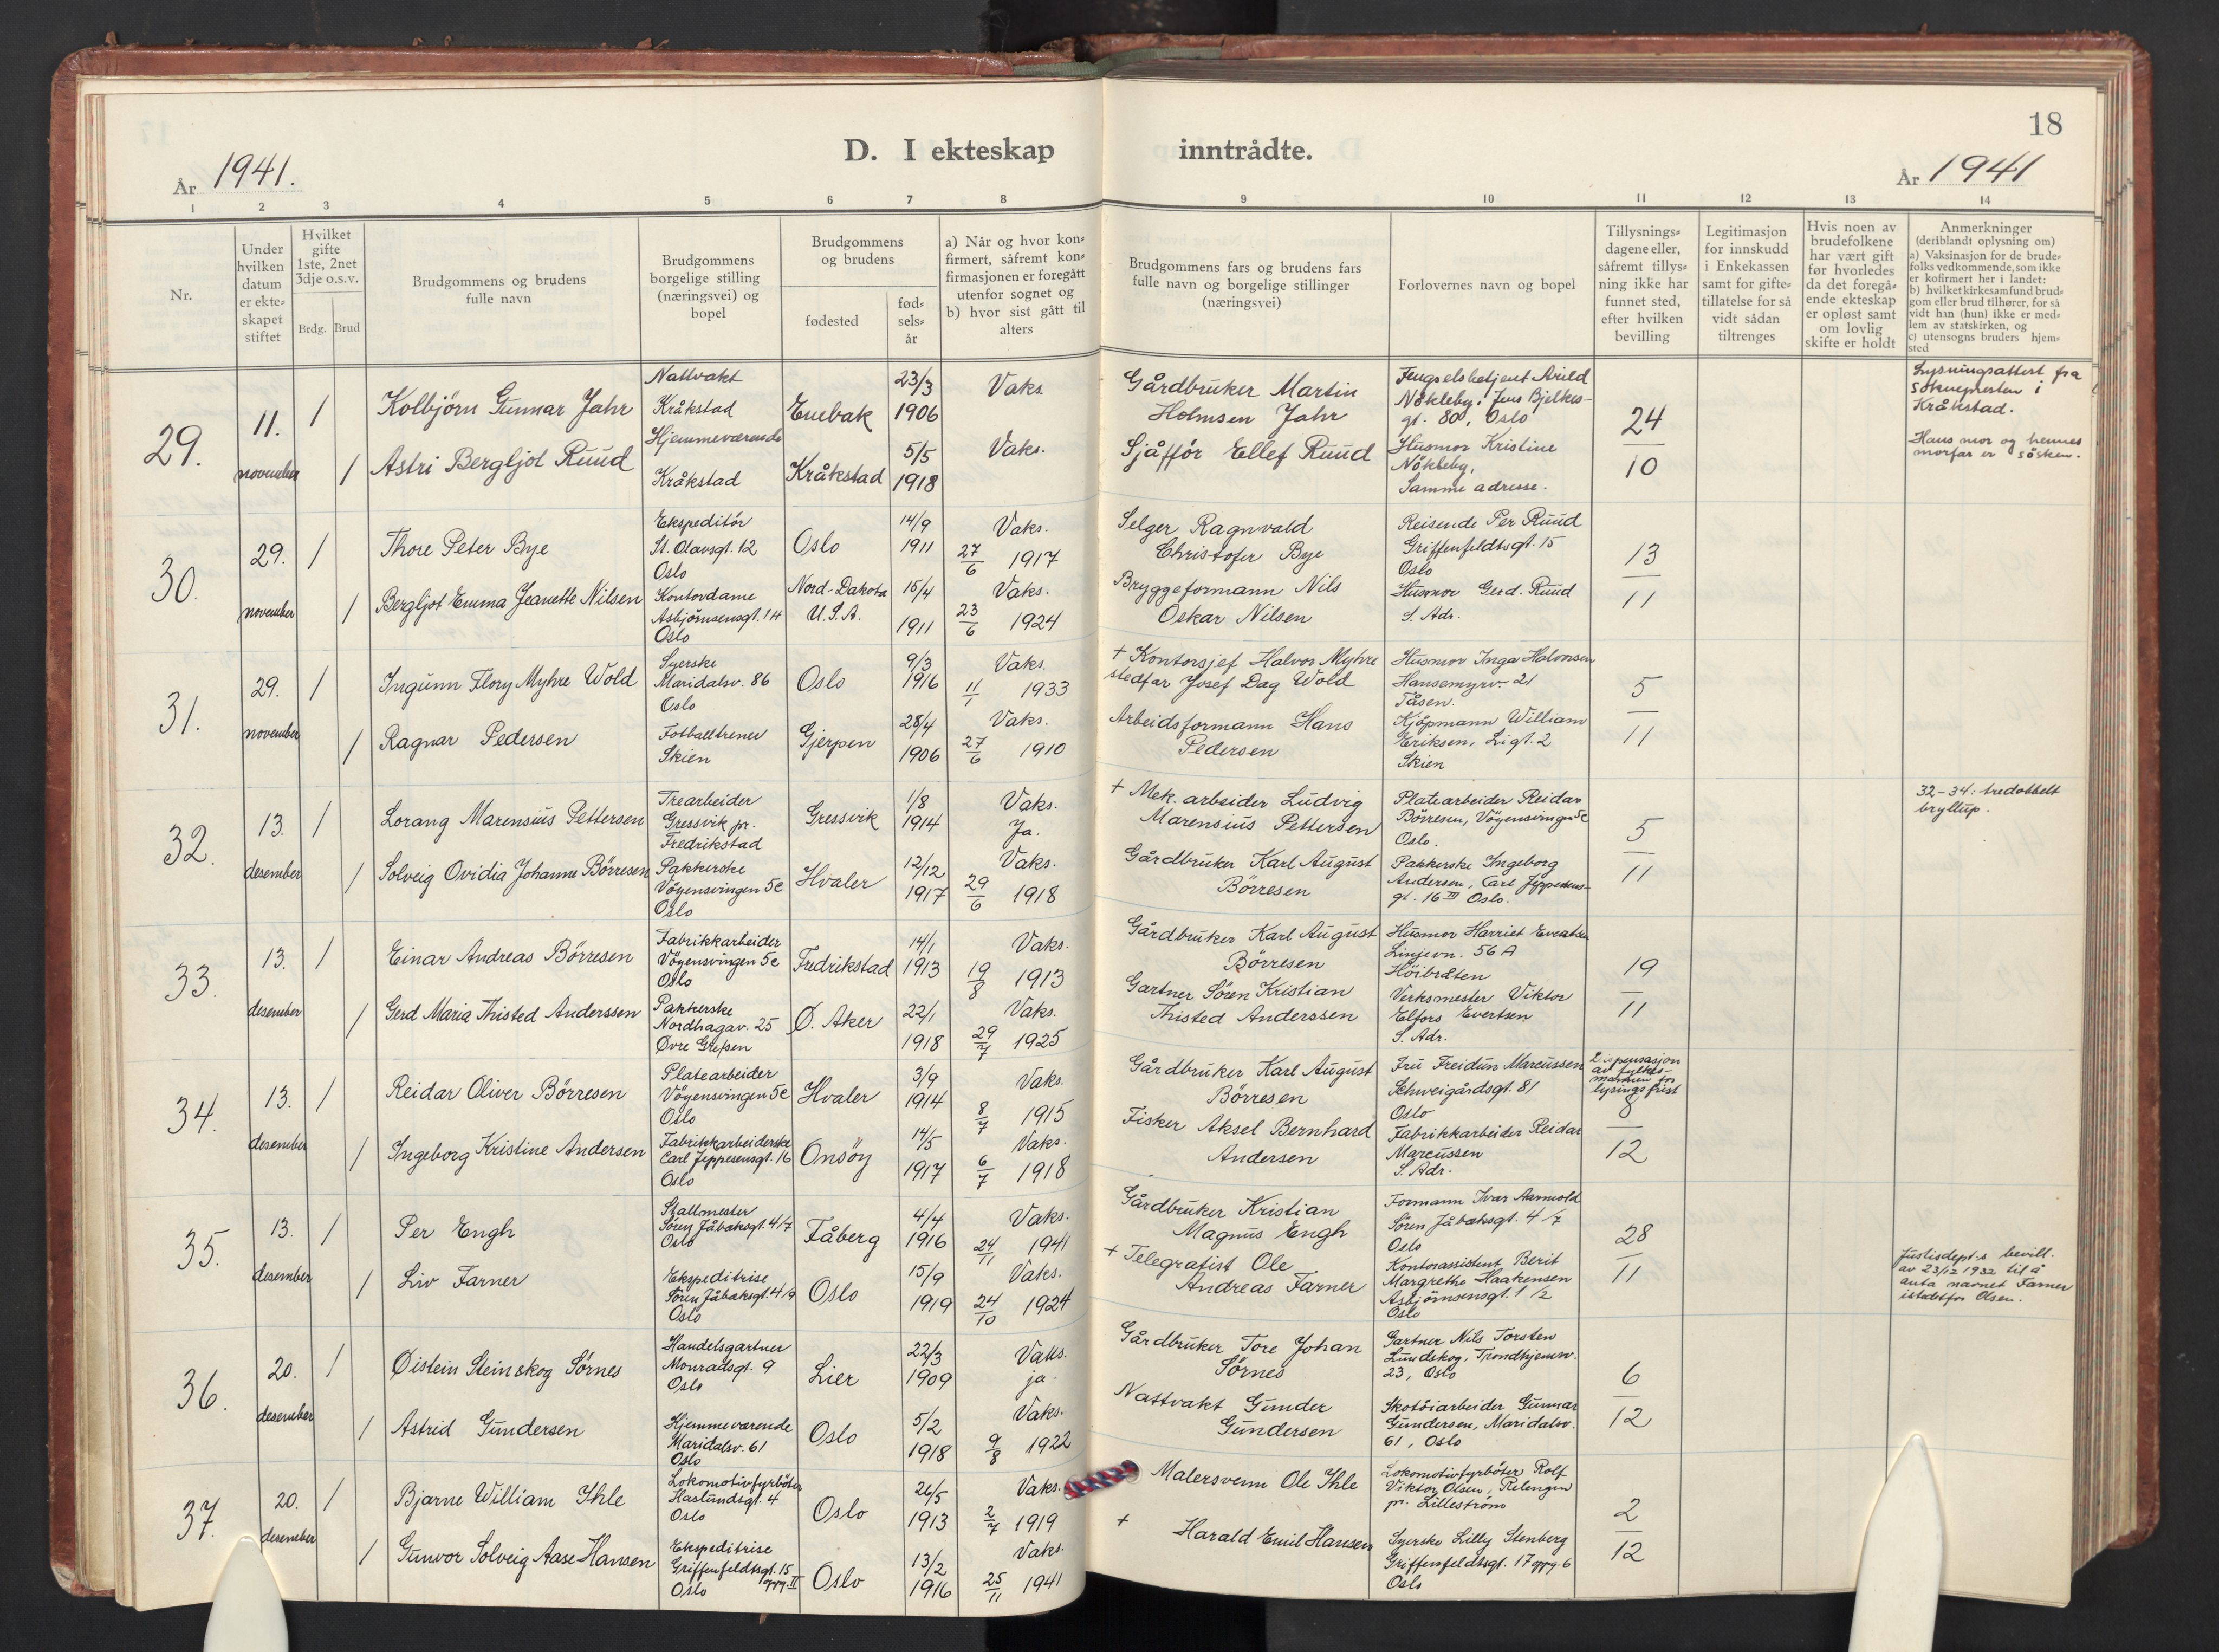 18
D. I ekteskap inntrådte.
År 1941.
År 1941
1 2 3 4 5 6 7 8 9 10 11 12 13 14
Nr.
Under
hvilken
datum
er ekte-
skapet
stiftet
Hvilket
gifte
1ste, 2net
3dje o.s.v.
Brdg. Brud
Brudgommens og brudens
fulle navn
Brudgommens
borgelige stilling
(næringsvei) og
bopel
Brudgommens
og brudens
fødested
fød-
sels-
år
a) Når og hvor kon-
firmert, såfremt kon-
firmasjonen er foregått
utenfor sognet og
b) hvor sist gått til
alters
Brudgommens fars og brudens fars
fulle navn og borgelige stillinger
(næringsvei)
Forlovernes navn og bopel
Tillysnings-
dagene eller,
såfremt tillys-
ning ikke har
funnet sted,
efter hvilken
bevilling
Legitimasjon
for innskudd
i Enkekassen
samt for gifte-
tillatelse for så
vidt sådan
tiltrenges
Hvis noen av
brudefolkene
har vært gift
før hvorledes
da det foregå-
ende ekteskap
er opløst samt
om lovlig
skifte er holdt
Anmerkninger
(deriblandt oplysning om)
a) Vaksinasjon for de brude-
folks vedkommende, som ikke
er kofirmert her i landet;
b) hvilket kirkesamfund brud-
gom eller brud tilhører, for så
vidt han (hun) ikke er med-
lem av statskirken, og
c) utensogns bruders hjem-
sted
29.
11.
november
1
Kolbjörn Gunnar Jahr
Nattvakt
Kråkstad
Enebak
23/3
1906
Vaks.
Gårdbruker Martin
Holmsen Jahr
Fengselsbetjent Arild
Nökleby, Jens Bjelkes-
gt. 80, Oslo
24
10
Lysningsattest fra
soknepresten i
Kråkstad.
Hans mor og hennes
morfar er sösken.
1
Astri Bergljot Ruud
Hjemmeværende
Kråkstad
Kråkstad
5/5
1918
Vaks.
Sjåffór Ellef Ruud
Husmor Kristine
Nökleby,
Samme adresse.
30.
29.
november
1
Thore Peter Bye
Ekspeditör
St. Olavsgt. 12
Oslo
Oslo
14/9
1911
Vaks.
27/6 1917
Selger Ragnvald
Christofer Bye
Reisende Per Ruud
Griffenfeldtsgt. 15
Oslo
13
11
1
Bergljot Emma Jeanette Nilsen
Kontordame
Asbjörnsensgt. 14
Oslo
Nord-Dakota
U.S.A.
15/4
1911
Vaks.
23/6 1924
Bryggeformann Nils
Oskar Nilsen
Husmor Gerd Ruud
S. Adr.
31.
29.
november
1
Ingunn Flory Myhre Wold
Syerske
Maridalsv. 86
Oslo
Oslo
9/3
1916
Vaks.
11/1 1933
+ Kontorsjef Halvor Myhre
stedfar Josef Dag Wold
Husmor Inga Halvorsen
Hansemyrv. 21
Tåsen.
5
11
1
Ragnar Pedersen
Fotballtrener
Skien
Gjerpen
28/4
1906
Vaks.
27/6 1910
Arbeidsformann Hans
Pedersen
Kjöpmann William
Eriksen, Ligt. 2
Skien
32.
13.
desember
1
Lorang Marensius Pettersen
Trearbeider
Gressvik pr.
Fredrikstad
Gressvik
1/8
1914
Vaks.
Ja.
+ Mek. arbeider Ludvig
Marensius Pettersen
Platearbeider Reidar
Börresen, Vöyensvingen 5c
Oslo.
5
11
32-34: tredobbelt
bryllup.
1
Solveig Ovidia Johanne Börresen
Pakkerske
Vöyensvingen 5c
Oslo
Hvaler
12/12
1917
Vaks.
29/6 1918
Gårdbruker Karl August
Börresen
Pakkerske Ingeborg
Andersen, Carl Jeppesens-
gt. 16 III Oslo.
33.
13.
desember
1
Einar Andreas Börresen
Fabrikkarbeider
Vöyensvingen 5c
Oslo
Fredrikstad
14/1
1913
Vaks.
19/8 1913
Gårdbruker Karl August
Börresen
Husmor Harriet Evertsen
Linjevn. 56 A
Höibråten
19
11
1
Gerd Maria Thisted Anderssen
Pakkerske
Nordhagav. 25
Øvre Grefsen
Ø. Aker
22/1
1918
Vaks.
29/7 1925
Gartner Sören Kristian
Thisted Anderssen
Verksmester Viktor
Elfors Evertsen
S. Adr.
34.
13.
desember
1
Reidar Oliver Börresen
Platearbeider
Vöyensvingen 5c
Oslo
Hvaler
3/9
1914
Vaks.
8/7 1915
Gårdbruker Karl August
Börresen
Fru Freidun Marcussen
Schweigårdsgt. 81
Oslo
Dispensasjon
av fylkes-
mannen for
lysingsfrist
8
12
1
Ingeborg Kristine Andersen
Fabrikkarbeiderske
Carl Jeppesensgt. 16
Oslo
Onsöy
14/5
1917
Vaks.
6/7 1918
Fisker Aksel Bernhard
Andersen
Fabrikkarbeider Reidar
Marcussen
S. Adr.
35.
13.
desember
1
Per Engh
Stallmester
Sören Jåbæksgt. 4/7
Oslo
Fåberg
4/4
1916
Vaks.
24/11 1941
Gårdbruker Kristian
Magnus Engh
Formann Ivar Aamold
Sören Jåbæksgt. 4/7
Oslo
28
11
1
Liv Farner
Ekspeditrise
Sören Jåbæksgt. 4/9
Oslo
Oslo
15/9
1919
Vaks.
24/10 1924
+ Telegrafist Ole
Andreas Farner
Kontorassistent Berit
Margrethe Haakensen
Asbjörnsensgt. 1 1/2
Oslo
Justisdept.s bevill.
av 23/12 1932 til å
anta navnet Farner
istedetfor Olsen.
36.
20.
desember
1
Øistein Steinskog Sörnes
Handelsgartner
Monradsgt. 9
Oslo
Lier
22/3
1909
Vaks.
ja.
Gårdbruker Tore Johan
Sörnes
Gartner Nils Torsten
Lundskog, Trondhjemsv.
23, Oslo
6
12
1
Astrid Gundersen
Hjemmeværende
Maridalsv. 61
Oslo
Oslo
5/2
1918
Vaks.
9/8 1922
Nattvakt Gunder
Gundersen
Skotöiarbeider Gunnar
Gundersen, Maridalsv.
61, Oslo
37.
20.
desember
1
Bjarne William Ihle
Lokomotivfyrböter
Haslundsgt. 4
Oslo
Oslo
26/5
1913
Vaks.
2/7 1919
Malersvenn Ole Ihle
Lokomotivfyrböter Rolf
Viktor Olsen, Relengen
pr. Lilleström
2
12
1
Gunvor Solveig Aase Hansen
Ekspeditrise
Griffenfeldtsgt. 15
oppg. II
Oslo
Oslo
13/2
1916
Vaks.
25/11 1941
+ Harald Emil Hansen
Syerske Lilly Stenberg
Griffenfeldtsgt. 17 oppg. 6
Oslo